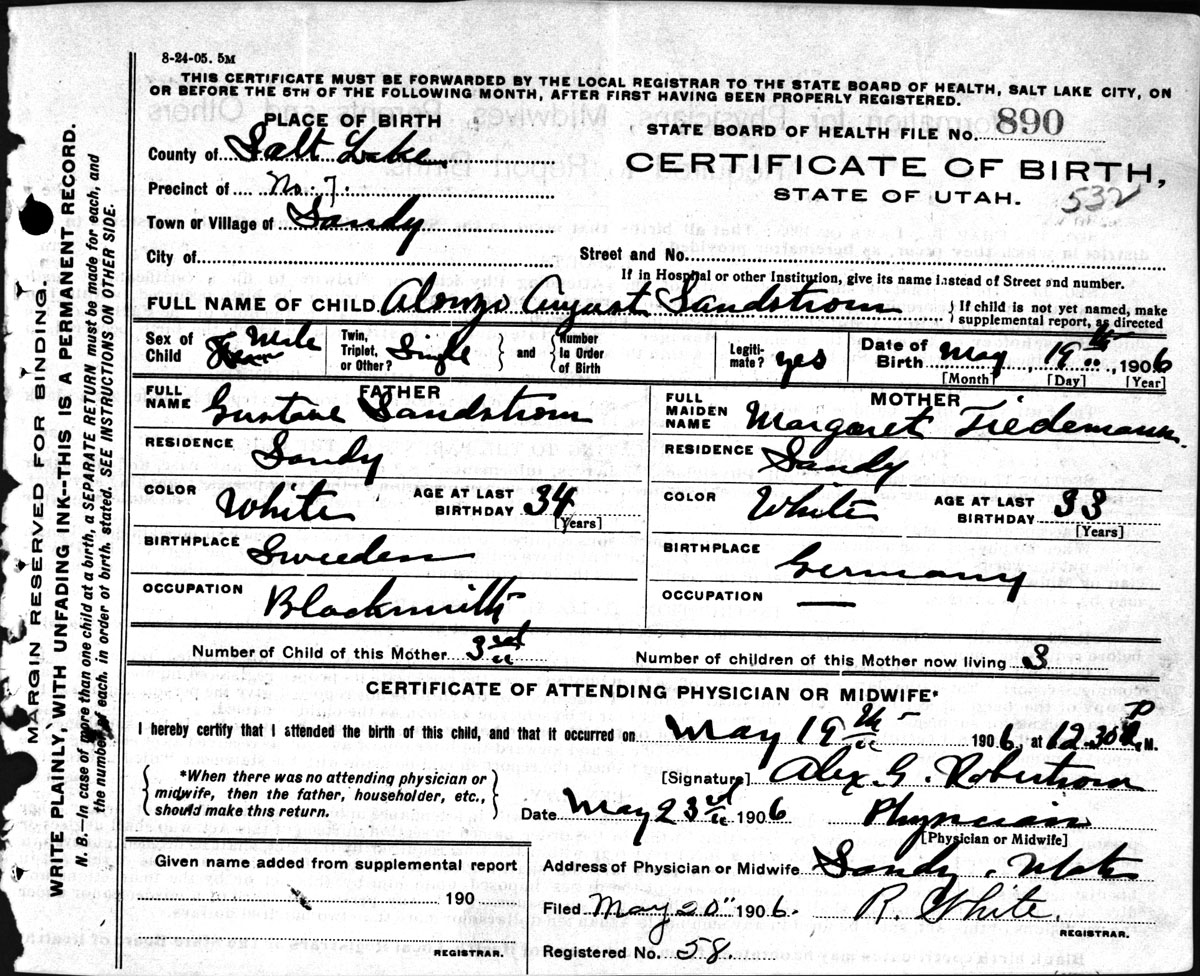 8-24-05. 5M
THIS CERTIFICATE MUST BE FORWARDED BY THE LOCAL REGISTRAR TO THE STATE BOARD OF HEALTH, SALT LAKE CITY, ON
OR BEFORE THE 5TH OF THE FOLLOWING MONTH, AFTER FIRST HAVING BEEN PROPERLY REGISTERED.
PLACE OF BIRTH
STATE BOARD OF HEALTH FILE NO. 890
County of Salt Lake
CERTIFICATE OF BIRTH,
Precinct of No. 7.
STATE OF UTAH.
532
Town or Village of Sandy
City of
Street and No.
If in Hospital or other Institution, give its name instead of Street and number.
FULL NAME OF CHILD Alonzo August Sandstrom
If child is not yet named, make
supplemental report, as directed
Sex of Child Male
Twin, Triplet, or Other? Single and Number In Order of Birth
Legiti-mate? yes
Date of Birth May 19th, 1906
[Month] [Day] [Year]
FATHER
FULL NAME Gustave Sandstrom
RESIDENCE Sandy
COLOR White AGE AT LAST BIRTHDAY 34
[Years]
BIRTHPLACE Sweeden
OCCUPATION Blacksmith
MOTHER
FULL MAIDEN NAME Margaret Tiedemann.
RESIDENCE Sandy
COLOR White AGE AT LAST BIRTHDAY 33
[Years]
BIRTHPLACE Germany
OCCUPATION —
Number of Child of this Mother 3rd
Number of children of this Mother now living 3
CERTIFICATE OF ATTENDING PHYSICIAN OR MIDWIFE*
I hereby certify that I attended the birth of this child, and that it occurred on May 19th 1906, at 12.30 P. M.
*When there was no attending physician or
midwife, then the father, householder, etc.,
should make this return.
[Signature] Alex. G. Robertson
Date May 23rd 1906
Physician
[Physician or Midwife]
Given name added from supplemental report
190
REGISTRAR.
Address of Physician or Midwife Sandy, Utah
Filed May 20" 1906. R. White.
REGISTRAR.
Registered No. 58.
MARGIN RESERVED FOR BINDING.
WRITE PLAINLY, WITH UNFADING INK--THIS IS A PERMANENT RECORD.
N. B.—In case of more than one child at a birth, a SEPARATE RETURN must be made for each, and
the number of each, in order of birth, stated. SEE INSTRUCTIONS ON OTHER SIDE.